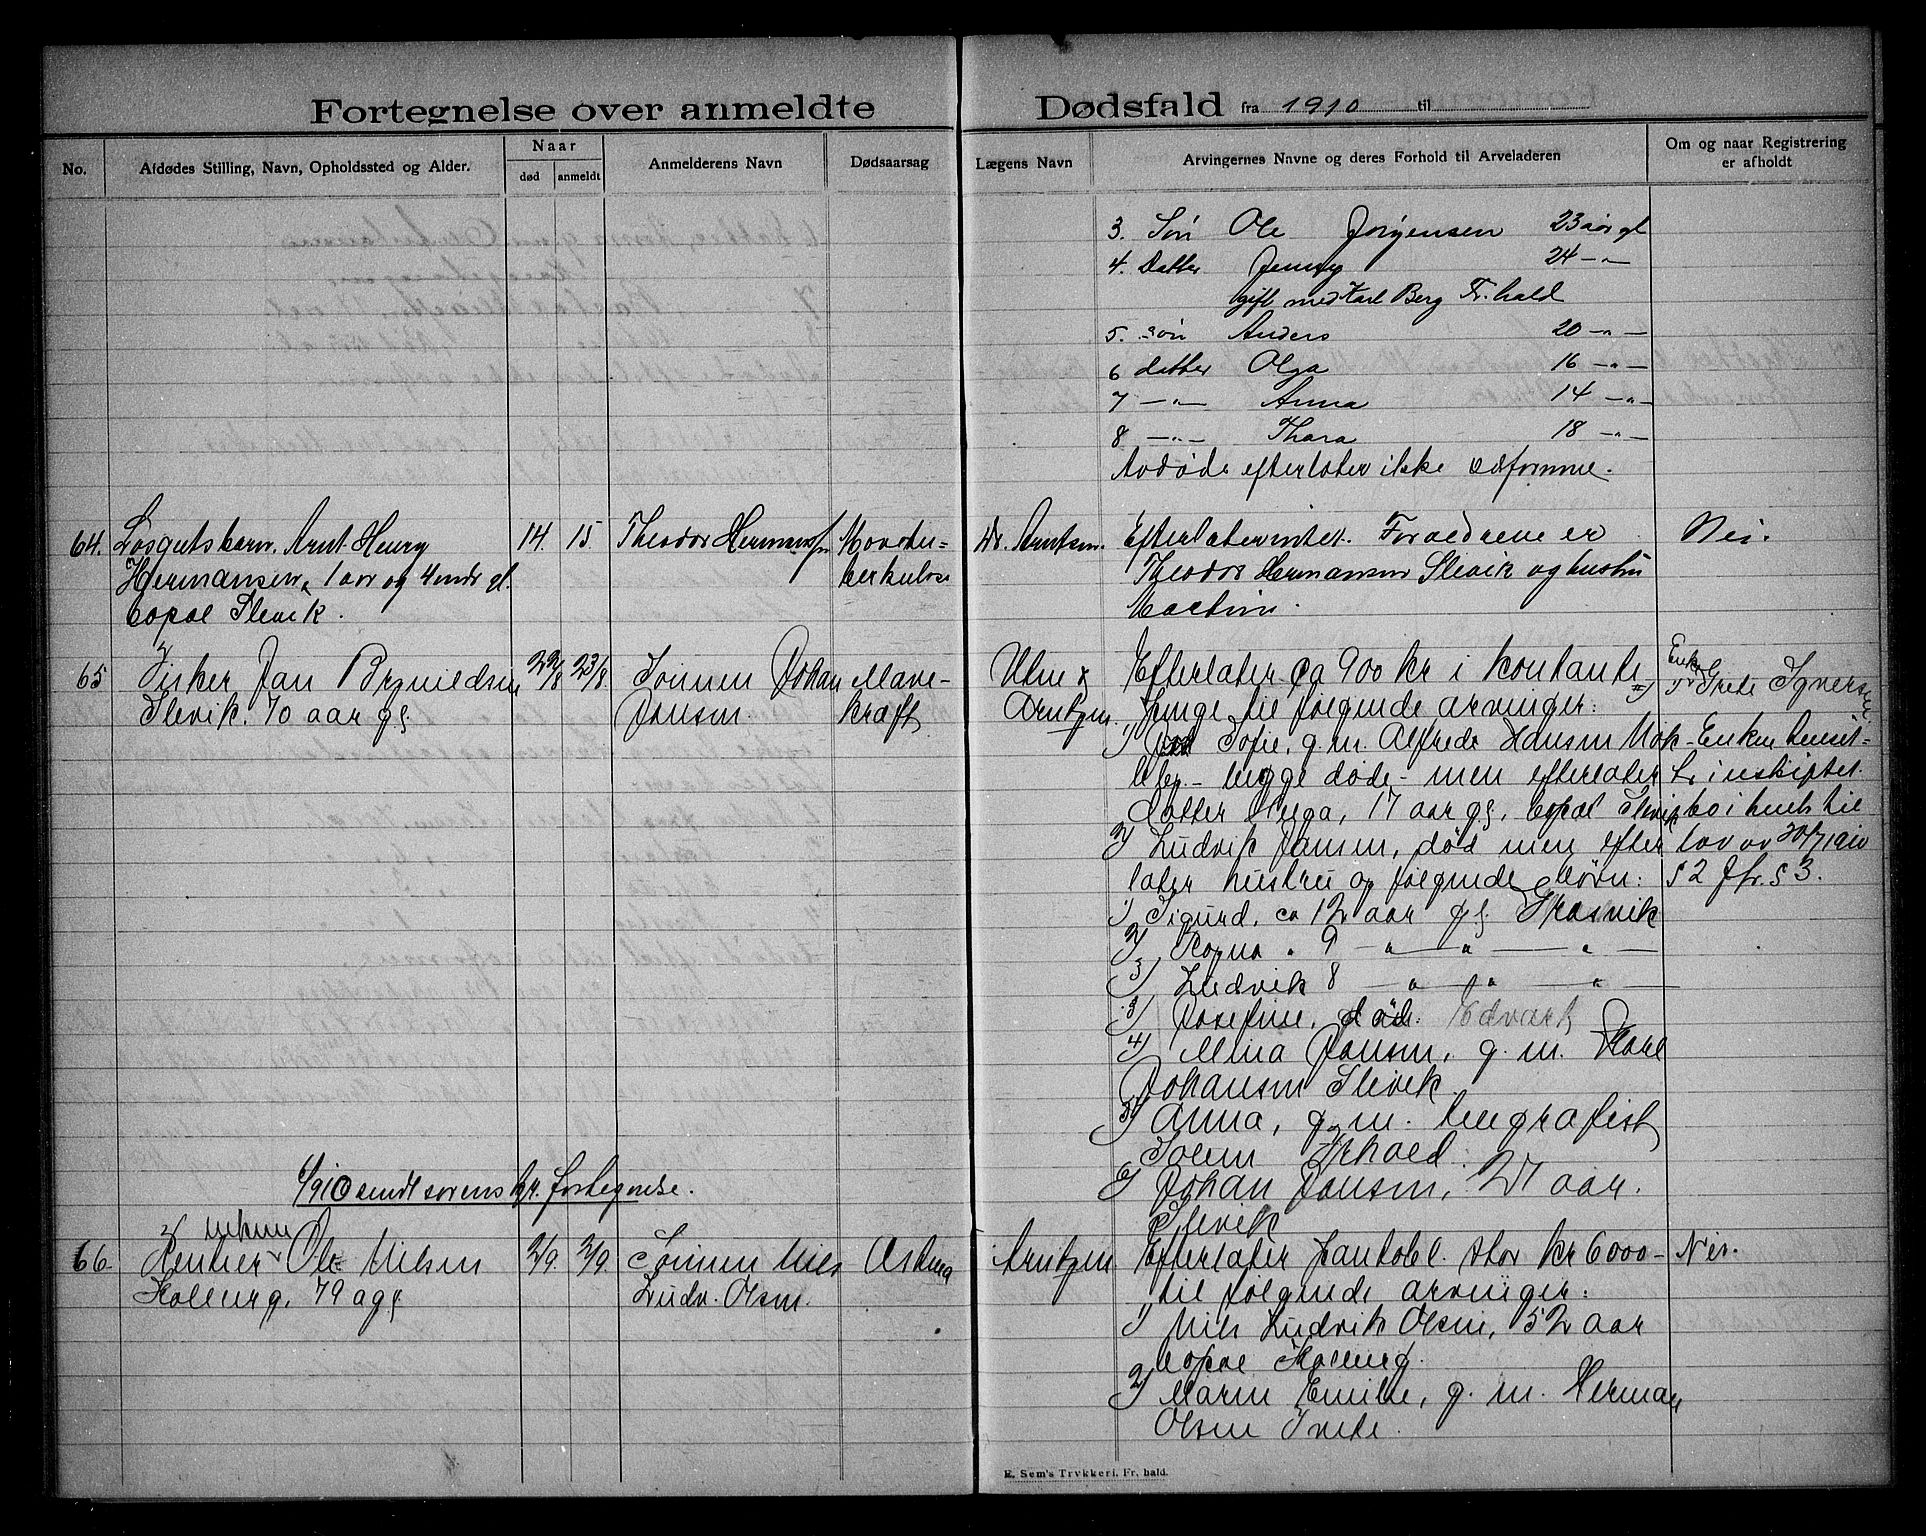 Fortegnelse over anmeldte
Dødsfald fra 1910 til
No.
Afdødes Stilling, Navn, Opholdssted og Alder.
Naar
død
anmeldt
Anmelderens Navn
Dødsaarsag
Lægens Navn
Arvingernes Navne og deres Forhold til Arveladeren
Om og naar Registrering
er afholdt
3. Søn Ole Jørgensen 23 aar gl
4. Datter Jenny 24 -"-
gift med Karl Berg Fr.hald
5. søn Anders 20 -"-
6 datter Olga 16 -"-
7 -"- Anna 14 -"-
8 -"- Thora 18 -"-
Avdøde efterlater ikke
64. Losgutsbarn. Arnt Henry
Hermansen, 1 aar og 4 mdr gl.
bopæl Slevik.
14. 15.
Theodor
berkulose
Dr. Arntsen.
Efterlater intet. Forældrene er
Theodor Hermansen Slevik og hustru
Nei.
65 Fisker Jan Brynildsen
Slevik. 70 aar gl.
22/8 23/8.
Sønnen Johan
Jansen.
Mave-
kræft
Utne &
Arntzen.
Efterlater ca 900 kr i kontante
penge til følgende arvinger:
1) Sofie, g.m. Alfrede Hansen
begge døde - men efterlater
datter 17 aar gl. bopæl Slevik
2) Ludvik Jansen, død men efter
later hustru og følgende børn:
1) Sigurd, ca 12 aar gl. Græsvik
2) Ragna " 9 - " - " - " -
3) Ludvik 8 - " - " - " -
3) Josefine, død. Edvart
4) Mina Jansen, g. m. Karl
Johansen Slevik.
5) Anna, g. m.
Solem Frhald.
6) Johan Jansen, 27 aar.
Slevik
Enke
Grete
Enken
bo i
lov av 30/7 1910
§ 2 Jfr. § 3.
1/9 10 sendt sorenskr. fortegnelse.
66. Rentier Ole Nilsen
79 a gl
2/9. 2/9.
Sønnen Nils
Ludv. Olsen.
Astma
Arntzen
Efterlater stor kr 6000-
til følgende arvinger:
1) Nils Ludvik Olsen, 52 aar
bopæl
2) Maren Emilie, g. m. Herman
Olsen
Nei.
E. Sem's Trykkeri, Fr. hald.